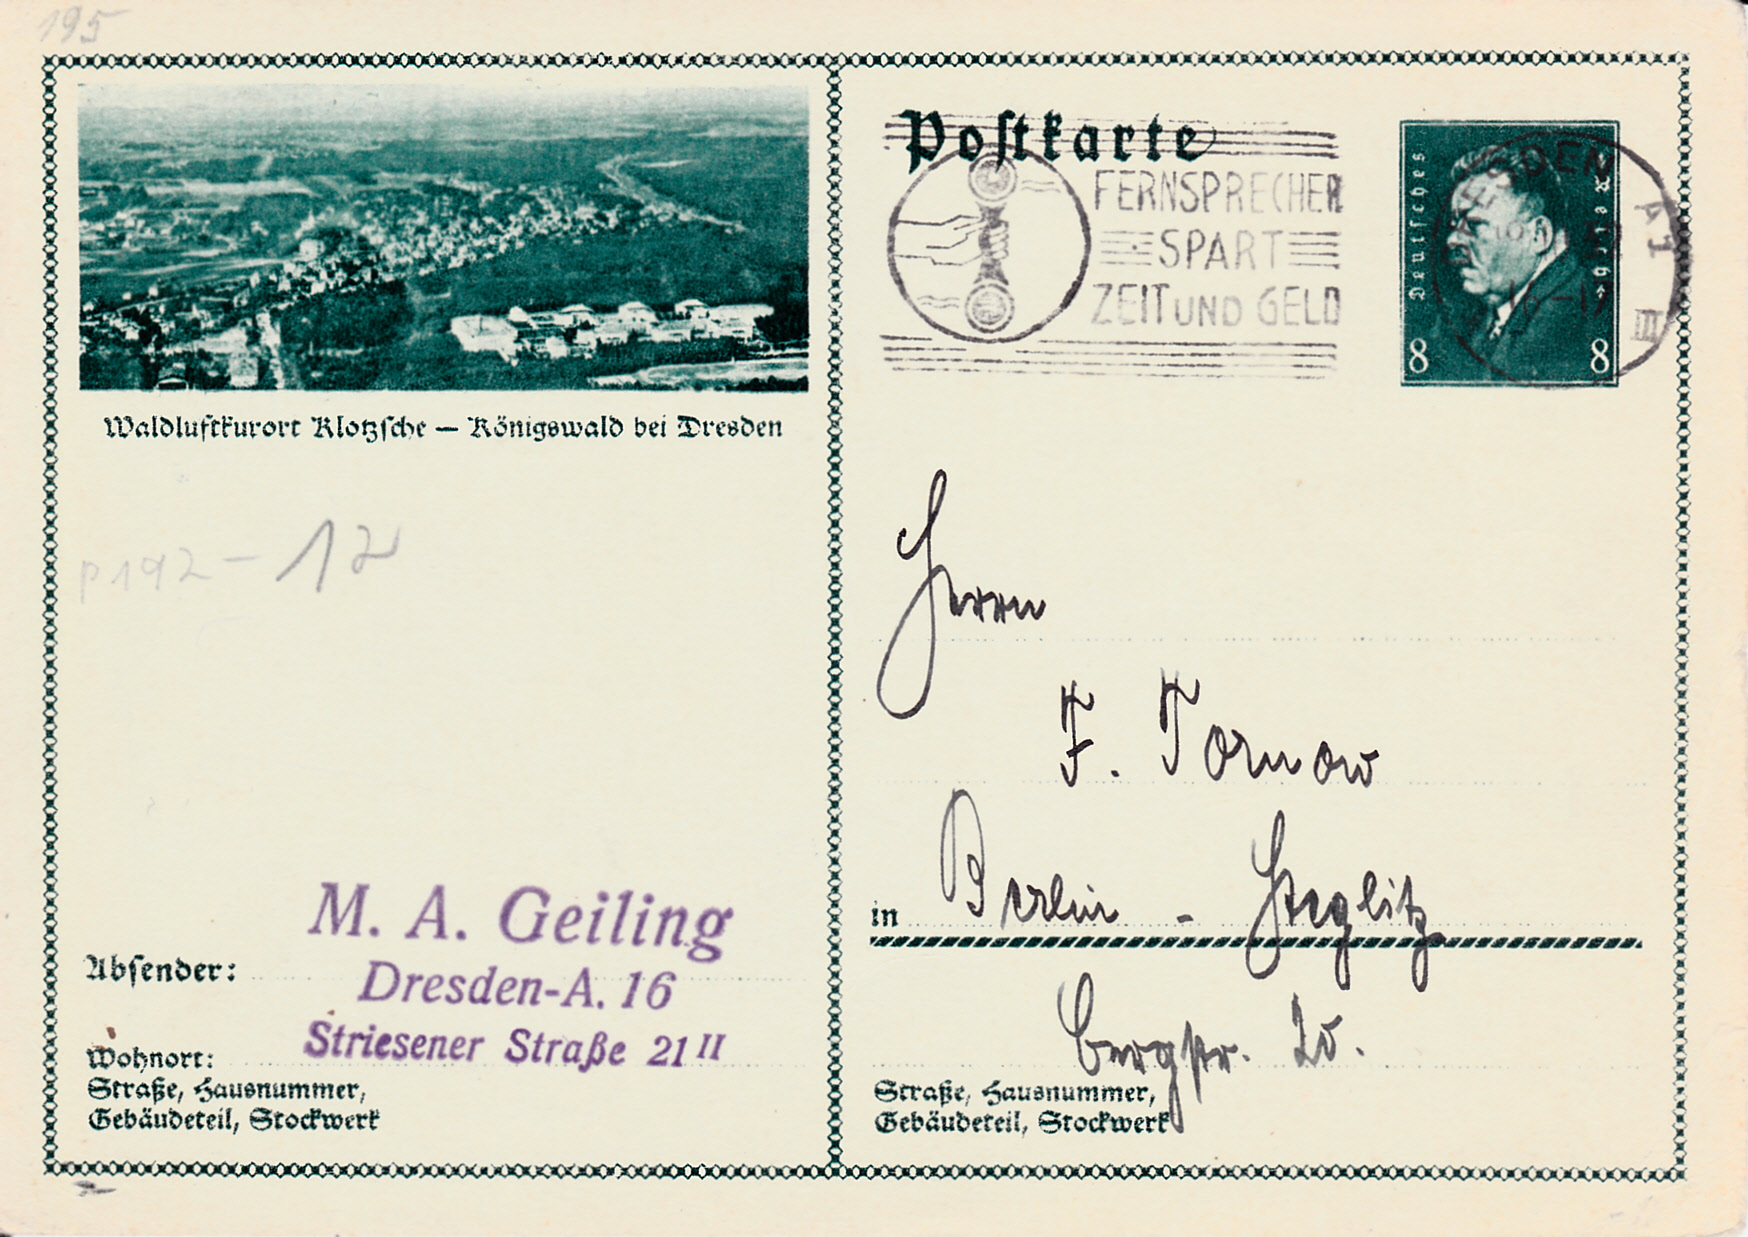 195
Waldluftkurort Klotzsche — Königswald bei Dresden
P192-12
M. A. Geiling
Absender:
Dresden-A. 16
Wohnort:
Striesener Straße 21 II
Straße, Hausnummer,
Gebäudeteil, Stockwerk
Postkarte
FERNSPRECHER
SPART
ZEIT UND GELD
Deutsches
Reich
8 8
DRESDEN A1
III
Herrn
F. Tornow
in Berlin - Steglitz
Bergstr.
Straße, Hausnummer,
Gebäudeteil, Stockwerk